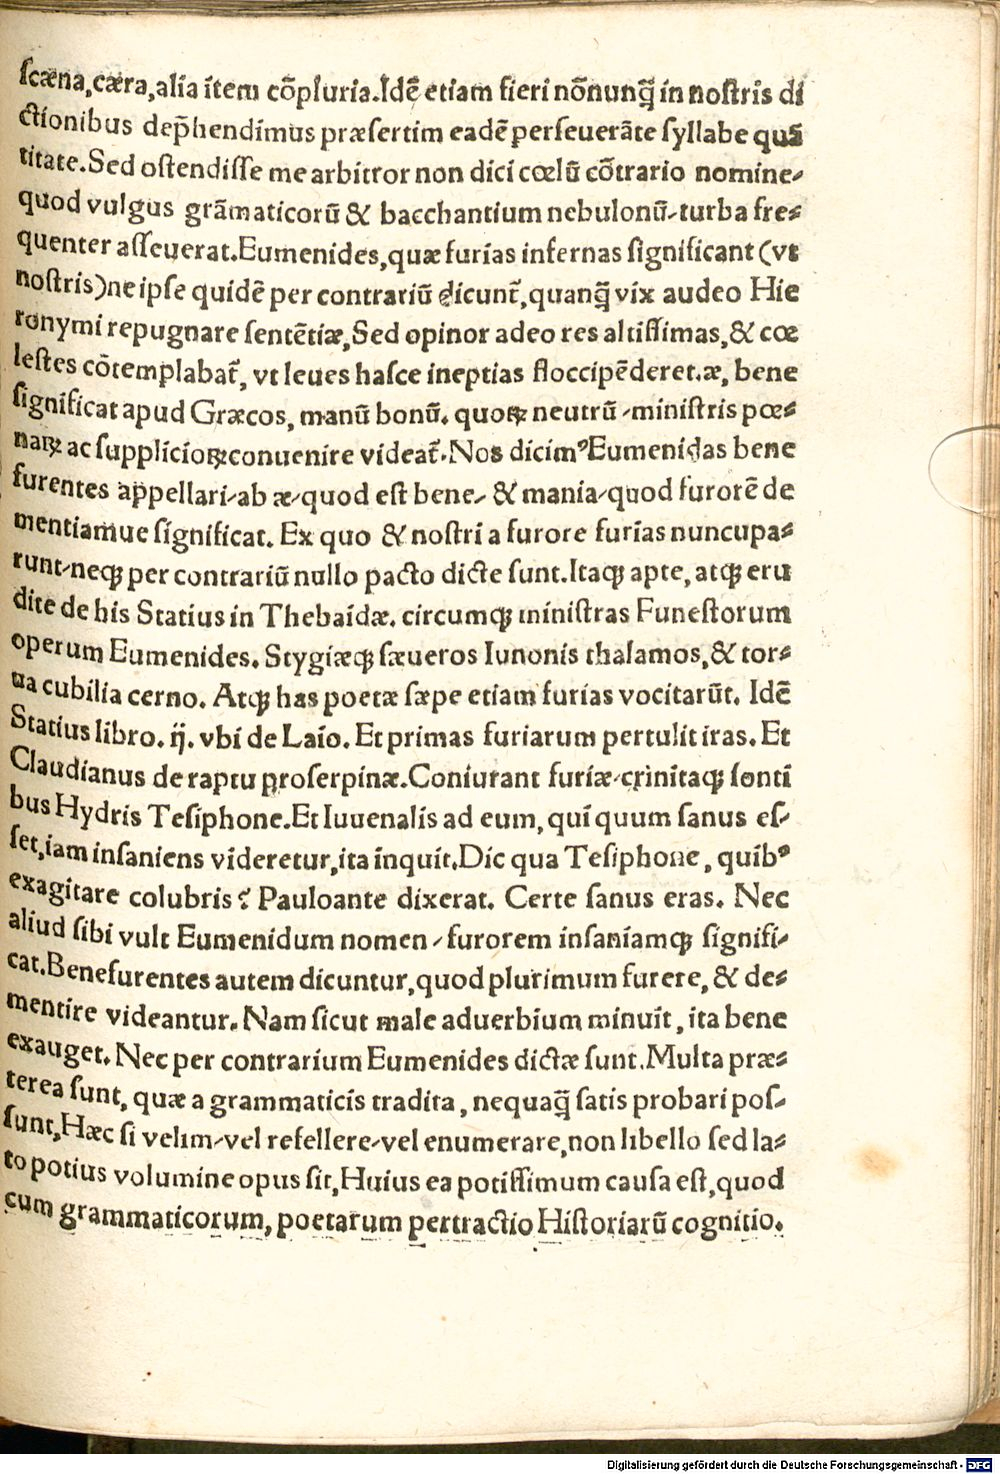 ſcæna,cæra,alia item cõpluria.Idẽ etiam fieri nõnunq̃ in noſtris di
ctionibus dep̃hendimus præſertim eadẽ perſeuerãte ſyllabe quã
titate.Sed oſtendiſſe me arbitror non dici cœlũ cõtrario nomine⸗
quod vulgus grãmaticorũ & bacchantium nebulonũ⸗turba fre⸗
quenter aſſeuerat.Eumenides,quæ furias infernas ſignificant (vt
noſtris)ne ipſe quidẽ per contrariũ dicunt̃,quanq̃ vix audeo Hie
ronymi repugnare ſentẽtiæ,Sed opinor adeo res altiſſimas,& cœ
leſtes cõtemplabat̃, vt leues haſce ineptias floccipẽderet.æ, bene
ſignificat apud Græcos, manũ bonũ. quoꝝ neutrũ⸗miniſtris pœ⸗
naꝝ ac ſupplicioꝝ conuenire videat̃.Nos dicimꝰ Eumenidas bene
furentes appellari⸗ab æ⸗quod eſt bene⸗ & mania⸗quod furorẽ de
mentiamue ſignificat. Ex quo & noſtri a furore furias nuncupa⸗
runt⸗neqꝫ per contrariũ nullo pacto dicte ſunt.Itaqꝫ apte, atqꝫ eru
dite de his Statius in Thebaidæ. circumqꝫ miniſtras Funeſtorum
operum Eumenides. Stygiæqꝫ ſæueros Iunonis thalamos,& tor⸗
ua cubilia cerno. Atqꝫ has poetæ ſæpe etiam furias vocitarũt. Idẽ
Statius libro. ij. vbi de Laio. Et primas furiarum pertulit iras. Et
Claudianus de raptu proſerpinæ.Coniurant furiæ⸗crinitaqꝫ ſonti
bus Hydris Teſiphone.Et Iuuenalis ad eum, qui quum ſanus eſ⸗
ſet,iam inſaniens videretur,ita inquit.Dic qua Teſiphone, quibꝰ
exagitare colubris? Pauloante dixerat. Certe ſanus eras. Nec
aliud ſibi vult Eumenidum nomen⸗furorem inſaniamqꝫ ſignifi⸗
cat.Benefurentes autem dicuntur,quod plurimum furere, & de⸗
mentire videantur. Nam ſicut male aduerbium minuit, ita bene
exauget. Nec per contrarium Eumenides dictæ ſunt.Multa præ⸗
terea ſunt, quæ a grammaticis tradita, nequaq̃ ſatis probari poſ⸗
ſunt,Hæc ſi velim⸗vel refellere⸗vel enumerare,non libello ſed la⸗
to potius volumine opus ſit,Huius ea potiſſimum cauſa eſt,quod
cum grammaticorum, poetarum pertractio Hiſtoriarũ cognitio.
Digitalisierung gefördert durch die Deutsche Forschungsgemeinschaft - DFG